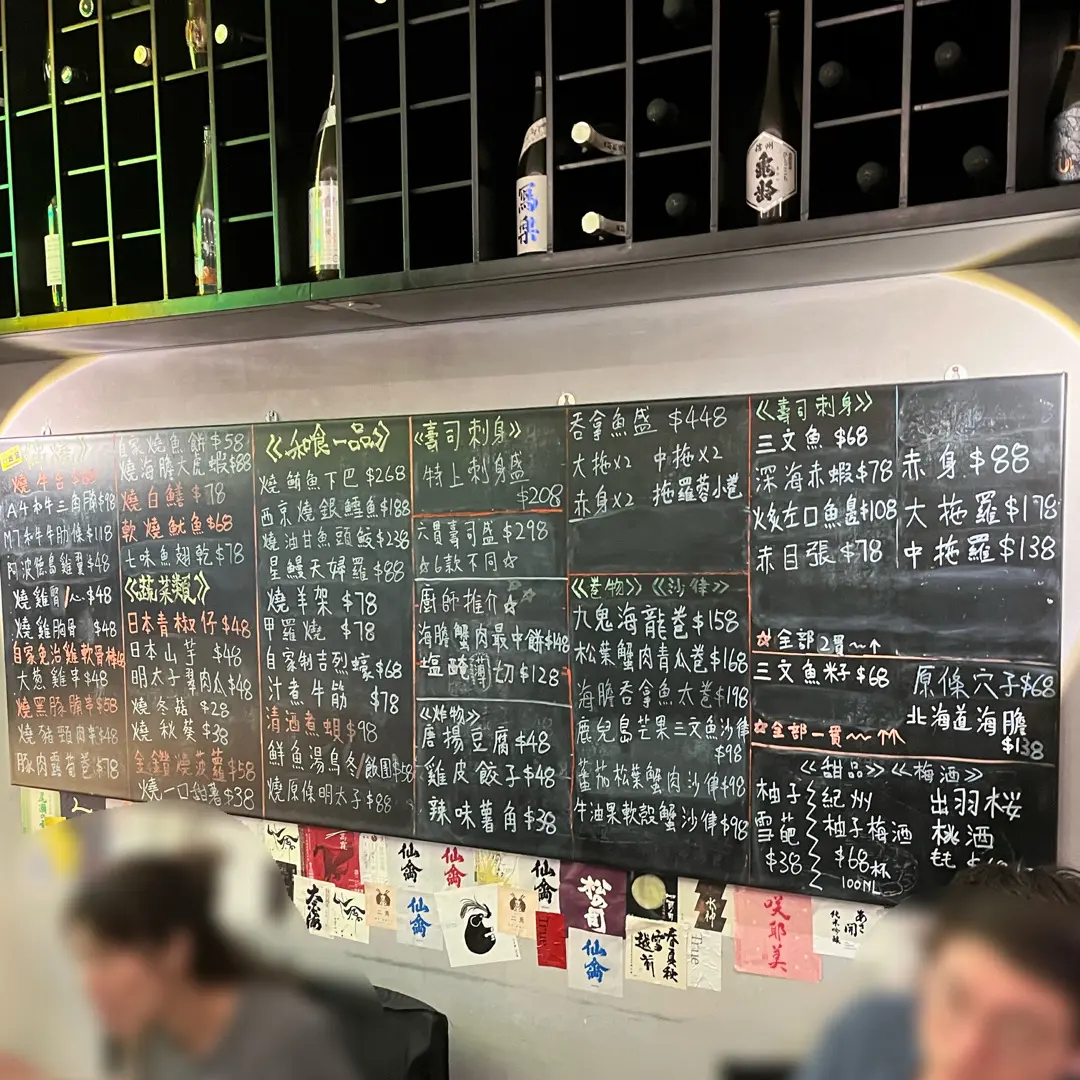 燒牛舌
A4和牛三角腩$98
M7和牛牛肋條$118
阿波德島雞翼$48
燒雞腎 $48
燒雞胸骨 $48
自家免治雞軟骨棒
大葱雞串$48
燒黑豚腩串$58
燒豬頸肉串$48
豚肉露荀卷$78
自家燒魚餅$58
燒海膽大虎蝦$88
燒白鱔$78
軟燒魷魚$68
七味魚翅乾$78
《蔬菜類》
日本青椒仔$48
日本山芋 $48
明太子翠肉瓜$48
燒冬菇 $28
燒秋葵 $38
金鑽燒菠蘿$58
燒一口甜薯$38
《和食一品》
燒鮪魚下巴 $268
西京燒銀鱈魚$188
燒油甘魚頭鮫$238
星鰻天婦羅 $88
燒羊架 $78
甲羅燒 $78
自家制吉烈蠔$68
汁煮牛筋 $78
清酒煮蜆 $98
鮮魚湯烏冬/飯團$58
燒原條明太子$88
《壽司刺身》
特上刺身盛
$208
六貫壽司盛$298
☆個款不同☆
廚師推介☆☆
海膽蟹肉最中餅$148
塩醃薄切$128
《炸物》
唐揚豆腐$48
雞皮餃子$48
辣味薯角$38
吞拿魚盛 $448
大拖x2 中拖x2
赤身x2 拖羅蓉小卷
《卷物》《沙律》
九鬼海龍卷$158
松葉蟹肉青瓜卷$168
海膽吞拿魚太卷$198
鹿兒島芒果三文魚沙律
$98
蕃茄松葉蟹肉沙律$98
牛油果軟殼蟹沙律$98
《壽司刺身》
三文魚 $68
深海赤蝦$78
火炙左口魚邊$108
赤目張 $78
☆全部2貫~↑
三文魚籽$68
☆全部一貫~↑↑
赤身$88
大拖羅$178
中拖羅$138
原條穴子$68
北海道海膽
$138
《甜品》《梅酒》
柚子
雪葩
$38
紀州
柚子梅酒
$68杯
100ML
出羽桜
桃酒
寫樂
信州
亀齡
仙禽
仙禽
仙禽
仙禽
仙禽
松司
二兎
二兎
水神
春夏秋
雪
越前
咲耶美
あさ開
純米吟釀